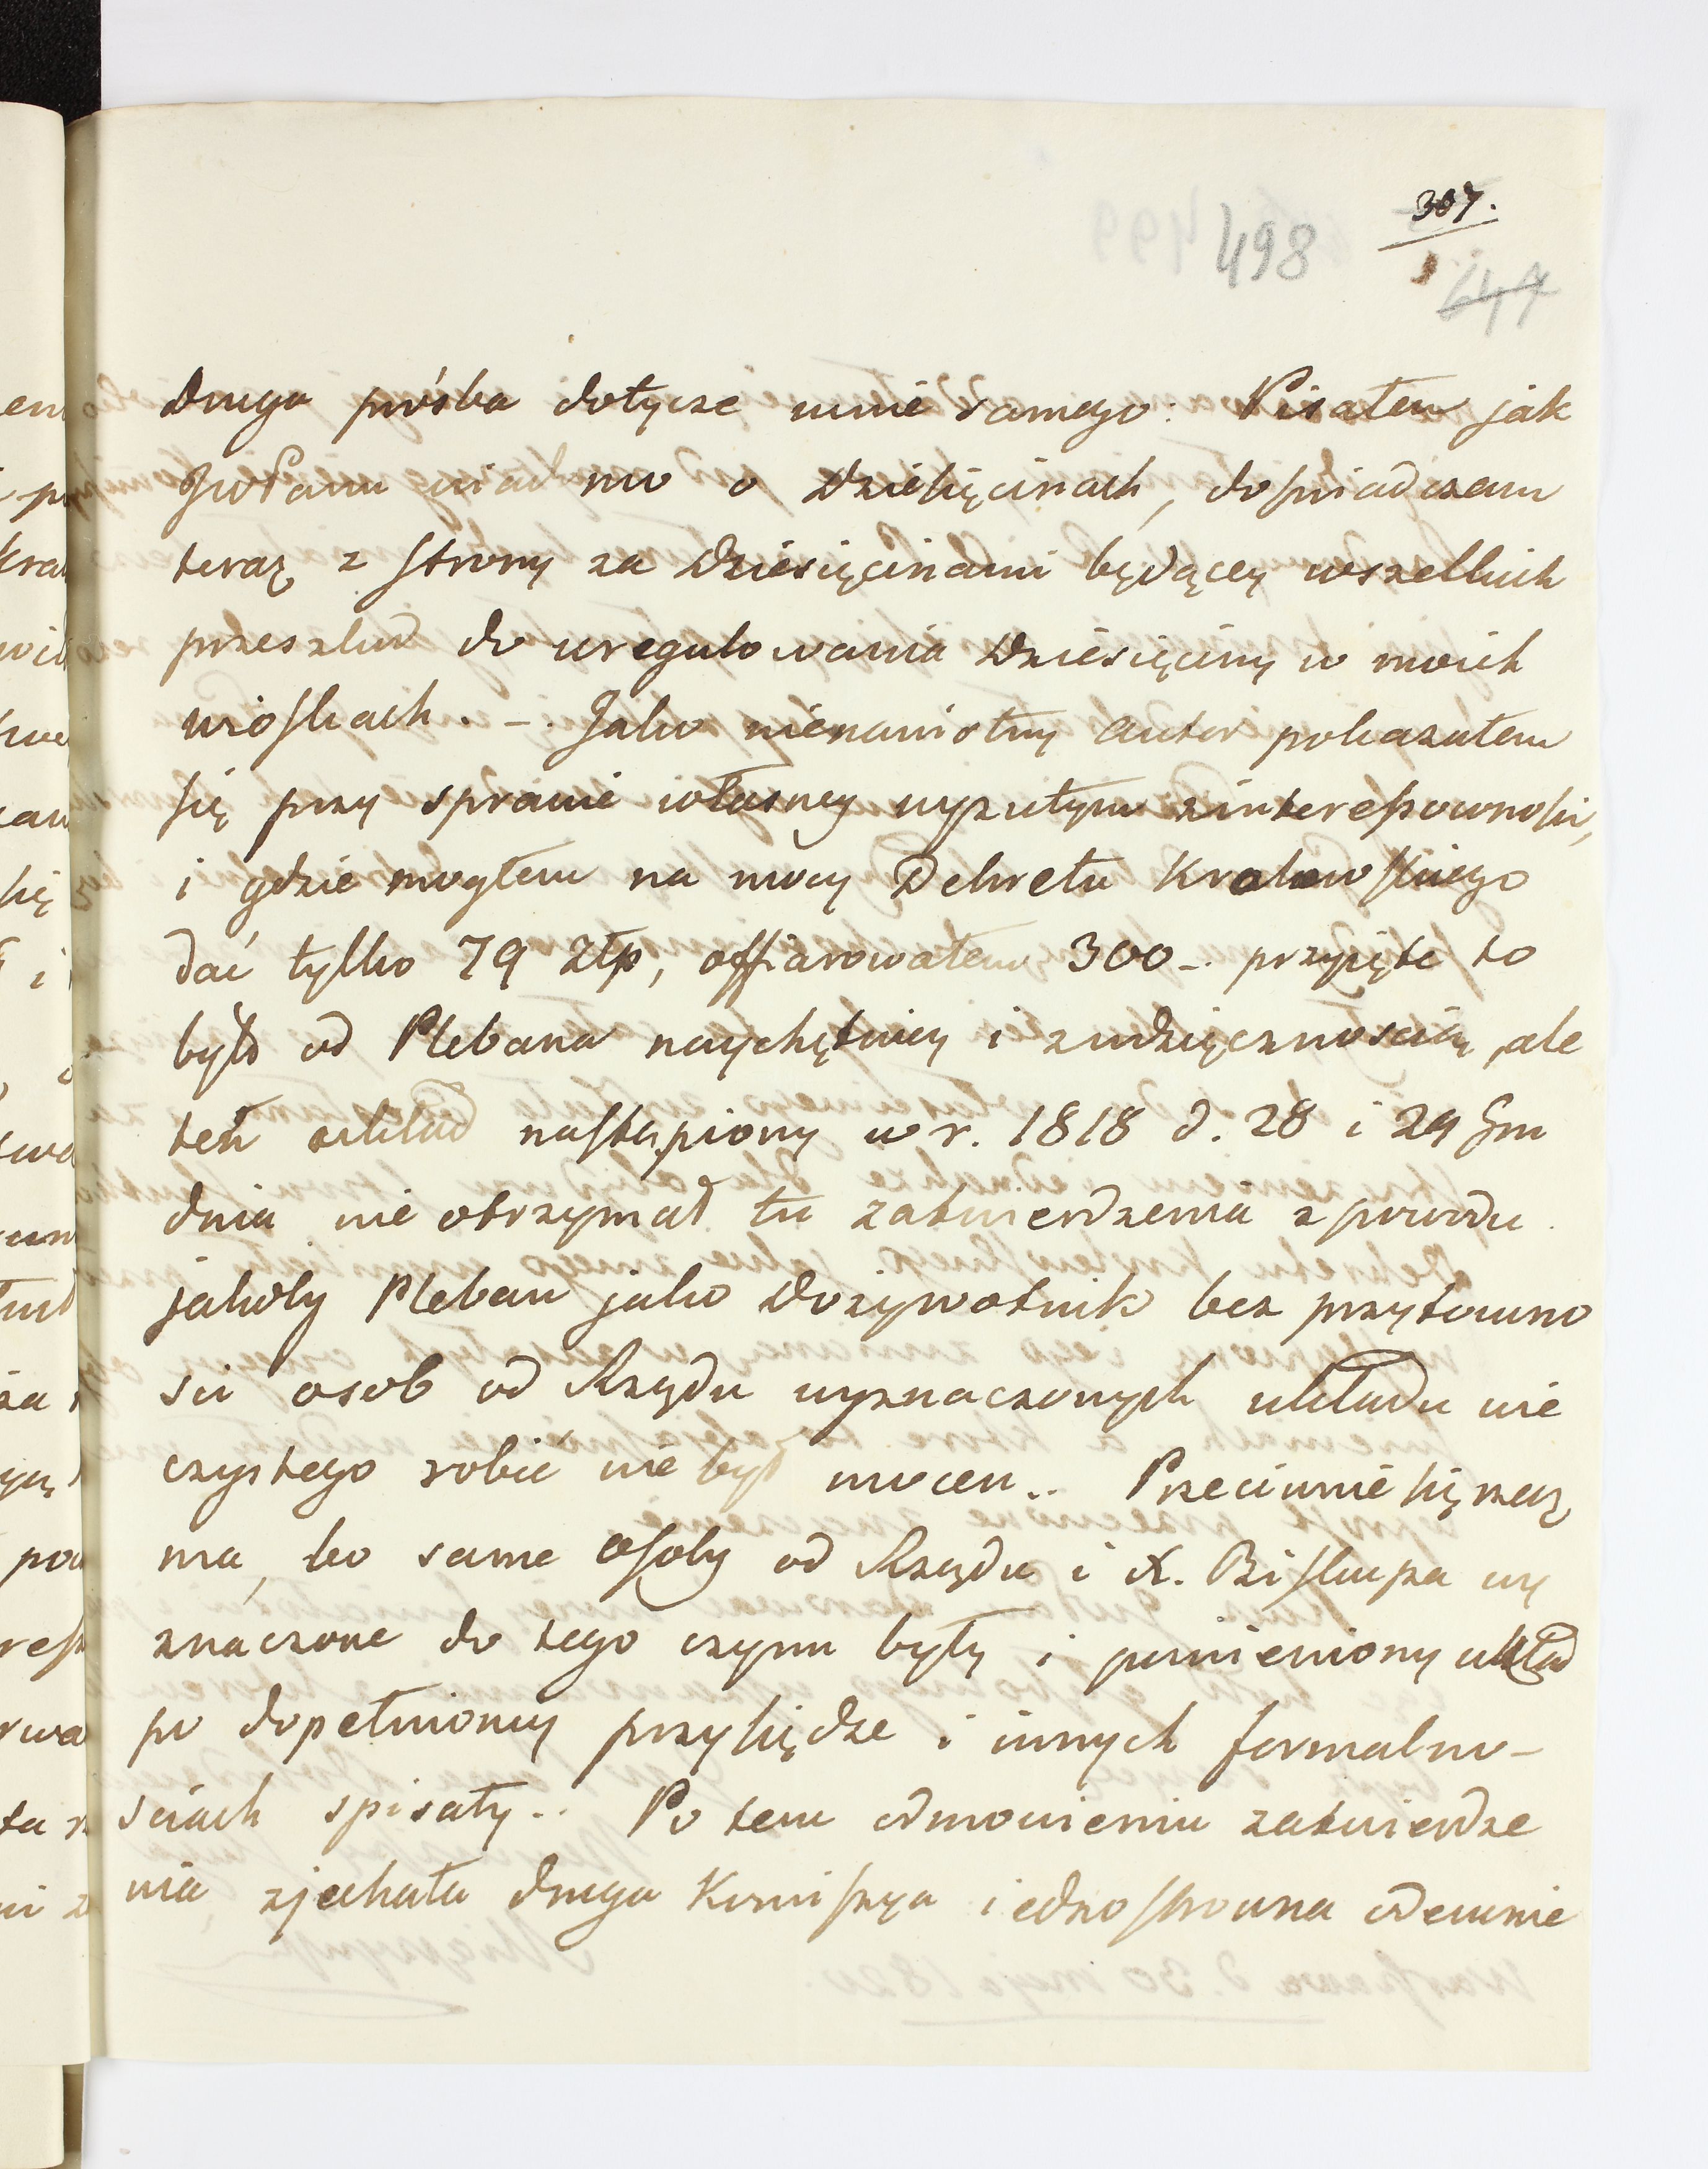 307.
498
647
Druga prośba dotycze mnie samego: Pisałem jak
JWPanu wiadomo o Dziesięcinach, doświadczam
teraz z strony za Dziesięcinami będącey wszelkich
przeszkod do uregulowania Dziesięciny w moich
wioskach. -. Jako nienawistny autor pokazałem
się przy sprawie własney wyzutym z interessowności,
i gdzie mogłem na mocy Dekretu Krakowskiego
dać tylko 79 Złp, offiarowałem 300 -. przyięte to
było od Plebana naychętniey i z wdzięcznoscią, ale
ten układ nastąpiony w r. 1818 d. 28 i 29
dnia nie otrzymał tu zatwierdzenia z powodu
jakoby Pleban jako Dożywotnik bez przytomno
sci osob od Rządu wyznaczonych układu wie
czystego robić nie był mocen.. Przeciwnie się rzecz
ma, bo same osoby od Rządu i X. Biskupa wy
znaczone do tego czynu były i pomieniony układ
po dopełnioney przysiędze i innych formalno-
sciach spisały.. Po tem odmowieniu zatwierdze
nia zjechała druga Komissya iednostronna odemnie